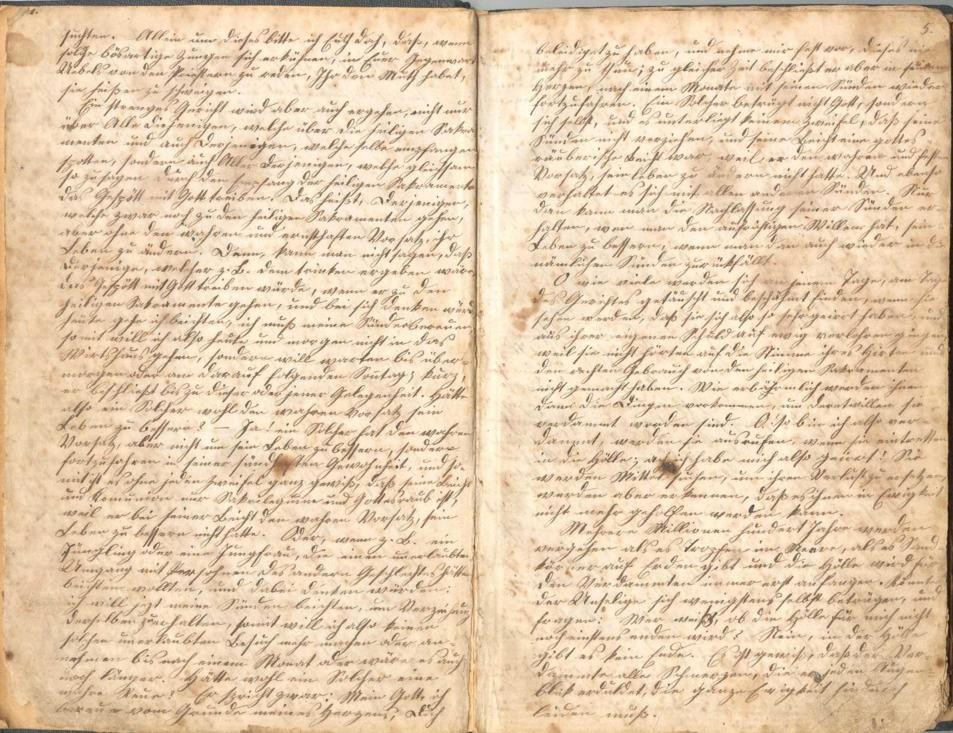 suchten. Allein um dieses bitte ich Euch doch, daß, wenn
solche bösartige Zungen sich erkühnen, in Euer Gegenwart
Uebels von den Priestern zu reden, Ihr den Muth habet,
sie heißen zu schweigen.
Ein strenges Gericht wird aber auch ergehen, nicht nur
über Alle diejenigen, welche über die heiligen Sakra-
menten und auch derjenigen, welche selbe empfangen
spotten, sondern auch Aller derjenigen, welche gleichsam
so zu sagen durch den Empfang der heiligen Sakramente
das Gespött mit Gott treiben. Das heißt, derjenigen,
welche zwar noch zu den heiligen Sakramenten gehen,
aber ohne den wahren und ernsthaften Vorsatz, ihr
Leben zu ändern. Denn, kann man nicht sagen, daß
derjenige, welcher z. B. dem trinken ergeben wäre
das Gespött mit Gott treiben würde, wenn er zu den
heiligen Sakramente gehen, und bei sich denken würde
heute gehe ich beichten, ich muß meine Sünden bereuen
somit will ich also heute und morgen nicht in das
Wirtshaus gehen, sondern will warten bis über-
morgen oder am darauf folgenden Sontag; kurz,
er beschließt bis zu dieser oder jener Gelegenheit. Hätte
also ein Solcher wohl den wahren Vorsatz sein
Leben zu bessern? – Ja! ein Solcher hat den wahren
Vorsatz, aber nicht um sein Leben zu bessern, sondern
fortzufahren in seiner sündhaften Gewohnheit, und so-
mit ist es ohne jeden zweifel ganz gewiß, daß seine Beicht
und Komunion nur Sakrilegium und Gottesraub ist,
weil er bei seiner Beicht den wahren Vorsatz, sein
Leben zu bessern nicht hatte. Oder, wenn z. B. ein
Jüngling oder eine Jungfrau, die einen unerlaubten
Umgang mit Personen des andern Geschlechtes hätten
beichten wollten, und dabei denken würden:
ich will jezt meine Sünden beichten, um Verzeihung
derselben zu erhalten, somit will ich also keinen
solchen unerlaubten Besuch mehr machen oder an-
nehmen bis nach einem Monat oder wäre es auch
noch länger. Hätte wohl ein Solcher eine
wahre Reue? Er spricht zwar: Mein Gott, ich
bereue vom Grunde meines Herzens, Dich
5.
beleidiget zu haben, und nehme mir fest vor, dieses nie
mehr zu thun; zu gleicher Zeit beschließt er aber in seinem
Herzen, nach einem Monate mit seinen Sünden wieder
fortzufahren. Ein Solcher betrügt nicht Gott, sondern
sich selbst, und es unterliegt keinem Zweifel, daß seine
Sünden nicht verziehen, und seine Beicht eine gottes-
räuberische Beicht war, weil er den wahren und festen
Vorsatz, sein Leben zu ändern nicht hatte. Und ebenso
verhaltet es sich mit allen anderen Sünden. Nur
dan kann man die Nachlassung seiner Sünden er-
halten, wen man den aufrichtigen Willen hat, sein
Leben zu bessern, wenn man dan auch wieder in die
nämlichen Sünden zurückfällt.
O wie viele werden sich an jenem Tage, am Tage
des Gerichtes getäuscht und beschämt finden, wenn sie
sehen werden, daß sie sich also so sehr geirrt haben, und
aus ihrer eigenen Schuld auf ewig verlohren gingen
weil sie nicht hörten auf die Stimme ihres Hirten und
den rechten Gebrauch von den heiligen Sakramenten
nicht gemacht haben. Wie erbärmlich werden ihnen
dann die Dingen vorkommen, um deretwillen sie
verdammt worden sind. O, so bin ich also ver-
dammt, werden sie ausrufen, wenn sie eintretten
in die Hölle; ach ich habe mich also geirrt! Sie
werden Mittel suchen, um ihren Verlust zu ersetzen
werden aber erkennen, daß es ihnen in Ewigkeit
nicht mehr geholfen werden kann.
Mehrere Millionen hundert Jahre werden
vergehen als es Tropfen im Meere, als es Sand-
körner auf Erden gibt und die Hölle wird für
den Verdammten immer erst anfangen. Könnte
der Unselige sich wenigstens selbst betrügen, und
fragen: Wer weiß, ob die Hölle für mich nicht
noch einstens enden wird? Nein, in der Hölle
gibt es kein Ende. Es ist gewiß, daß der Ver-
dammte alle Schmerzen, die er jeden Augen-
blik erduldet, die ganze Ewigkeit hindurch
leiden muß.